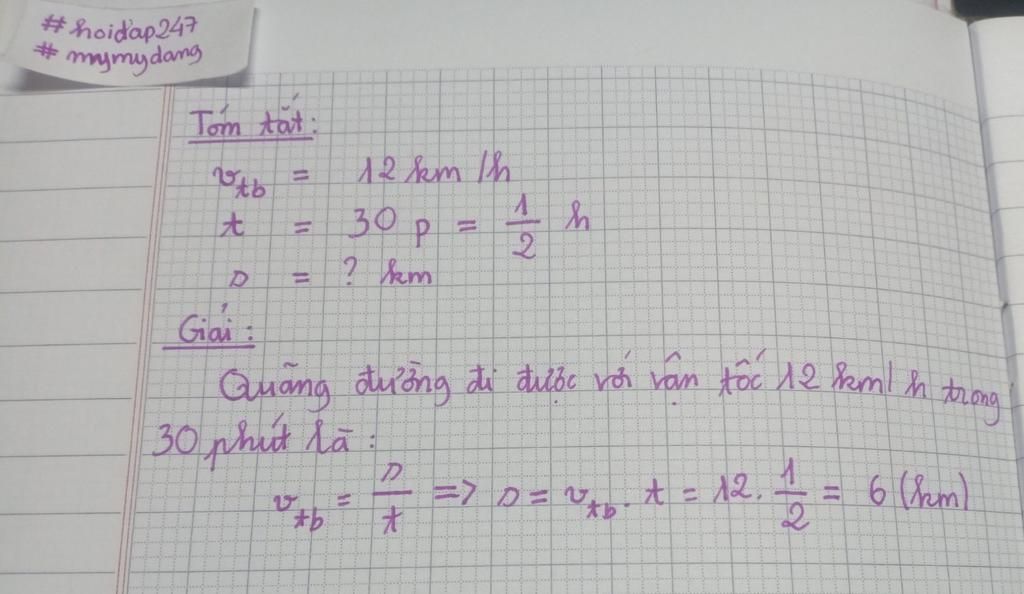 #hoidap247
#mymydang
Tóm tắt:
v_tb = 12 km/h
t = 30 p = 1/2 h
s = ? km
Giải:
Quãng đường đi được với vận tốc 12 km/h trong
30 phút là:
v_tb = s/t => s = v_tb . t = 12 . 1/2 = 6 (km)